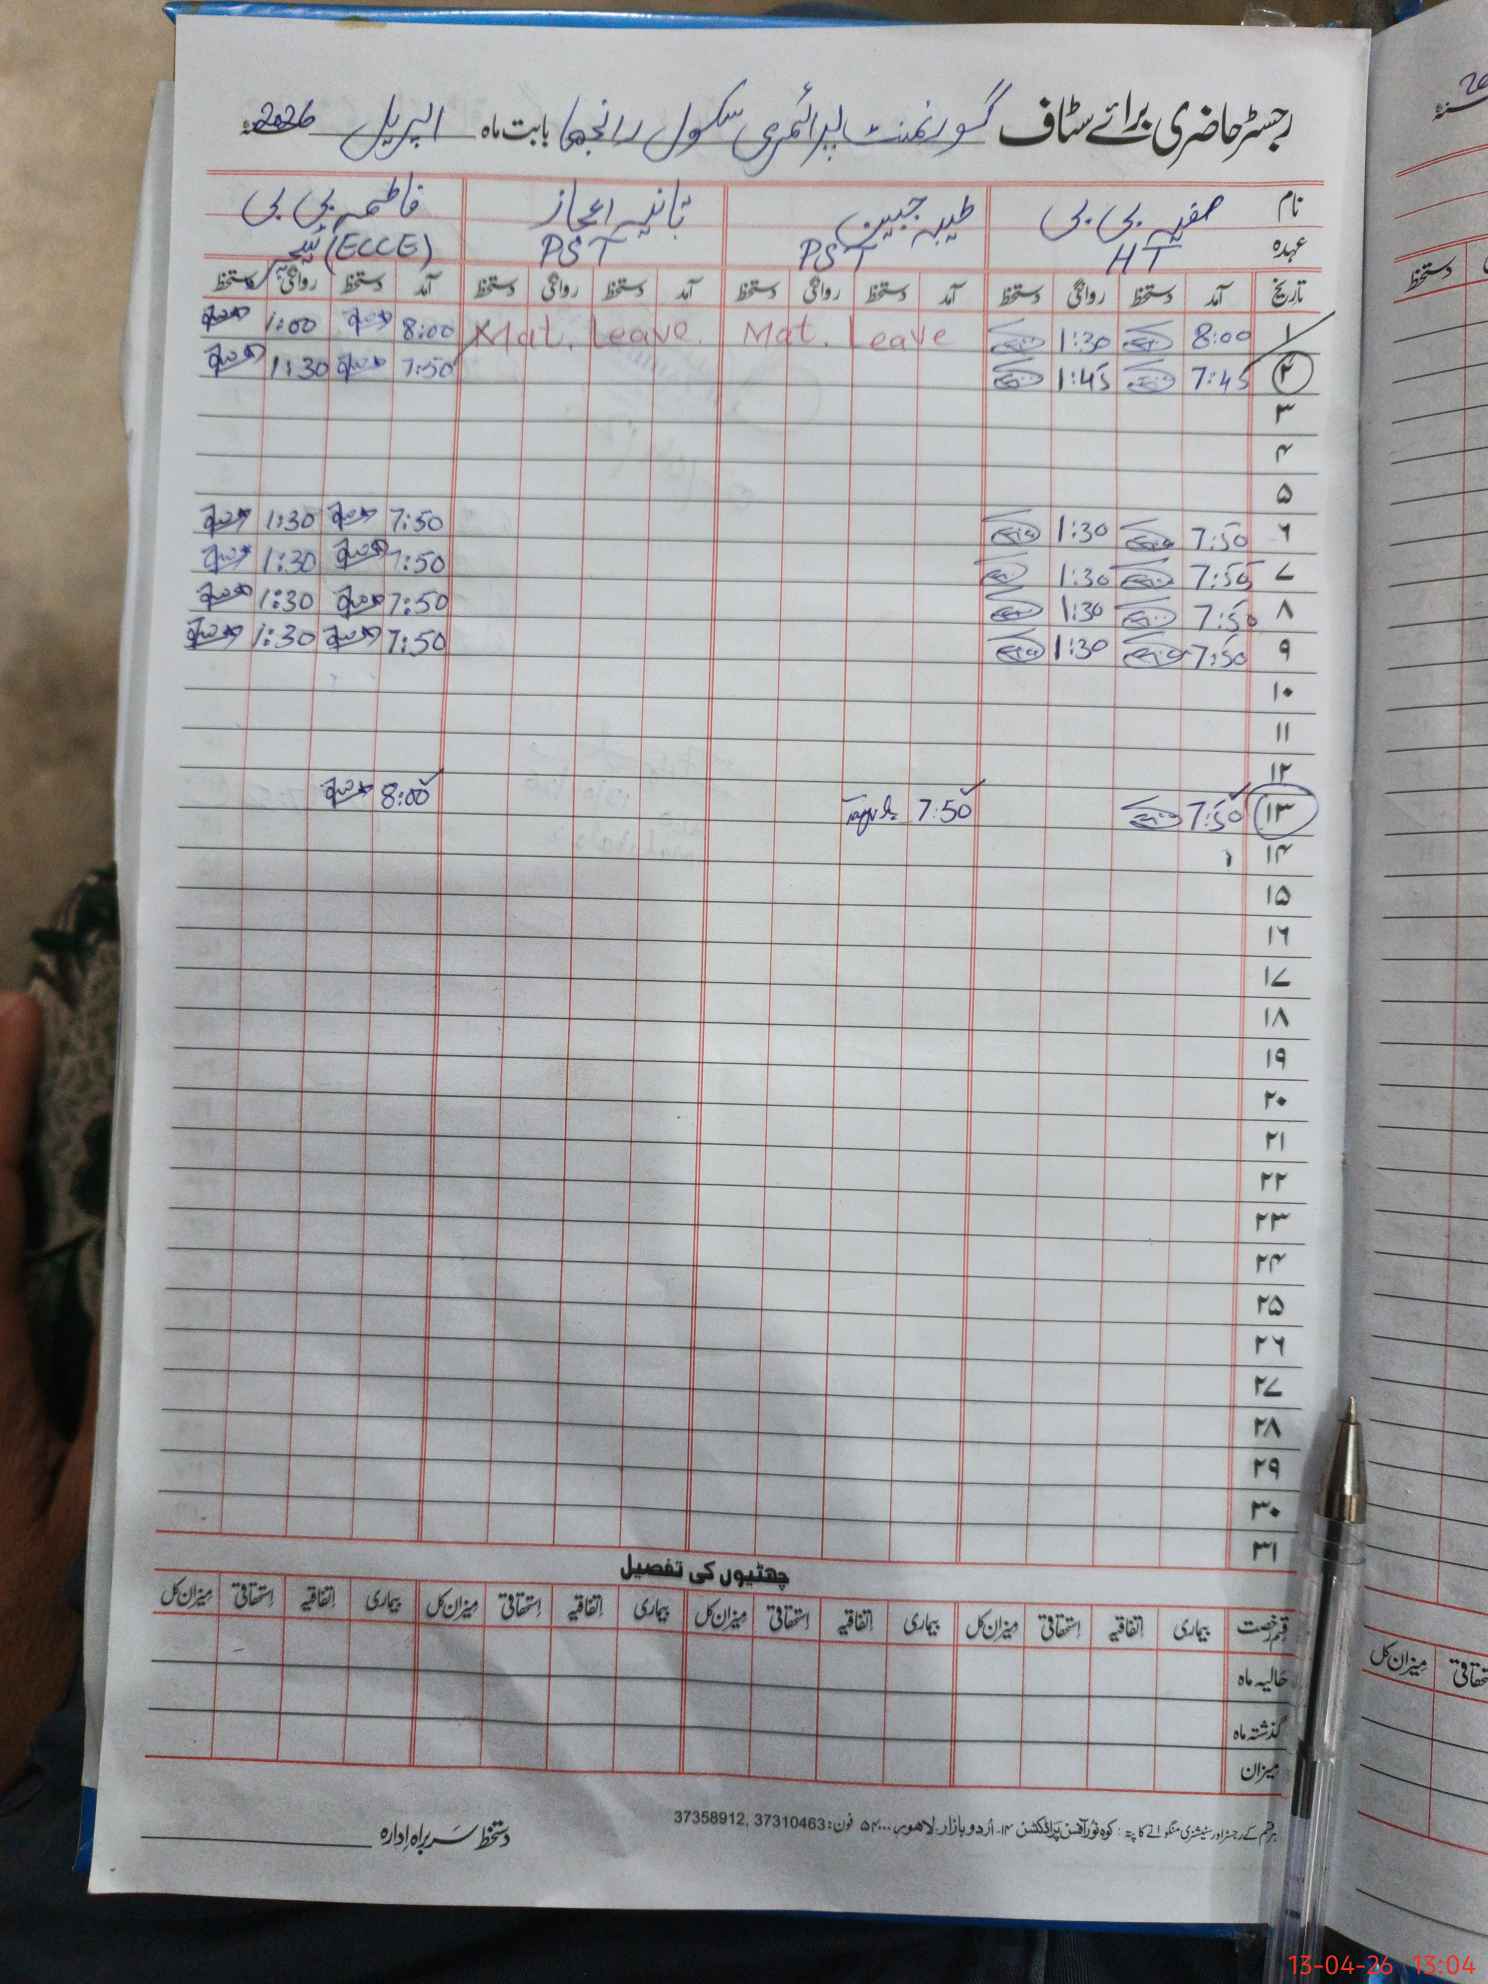 رجسٹر حاضری برائے سٹاف گورنمنٹ پرائمری سکول رانجھا بابت ماہ اپریل 2026ء
نام صفیہ بی بی طیبہ جبین ثانیہ اعجاز فاطمہ بی بی
عہدہ HT PST PST (ECCE) ٹیچر
تاریخ آمد دستخط روانگی دستخط آمد دستخط روانگی دستخط آمد دستخط روانگی دستخط آمد دستخط روانگی دستخط
۱ 8:00 1:30 Mat. Leave Mat. Leave. 8:00 1:00
۲ 7:45 1:45 7:50 1:30
۳
۴
۵
۶ 7:50 1:30 7:50 1:30
۷ 7:50 1:30 7:50 1:30
۸ 7:50 1:30 7:50 1:30
۹ 7:50 1:30 7:50 1:30
۱۰
۱۱
۱۲
۱۳ 7:50 7:50 8:00
۱۴
۱۵
۱۶
۱۷
۱۸
۱۹
۲۰
۲۱
۲۲
۲۳
۲۴
۲۵
۲۶
۲۷
۲۸
۲۹
۳۰
۳۱
چھٹیوں کی تفصیل
قسم رخصت بیماری اتفاقیہ استحقاقی میزان کل بیماری اتفاقیہ استحقاقی میزان کل بیماری اتفاقیہ استحقاقی میزان کل بیماری اتفاقیہ استحقاقی میزان کل
حالیہ ماہ
گذشتہ ماہ
میزان
ہر قسم کے رجسٹر اور سٹیشنری منگوانے کا پتہ: کوہ نور آفس پراڈکٹس ۱۴۔ اُردو بازار لاہور۔ ۵۴۰۰۰ فون: 37310463, 37358912
دستخط سربراہ ادارہ
دستخط
میزان کل
13-04-26 13:04